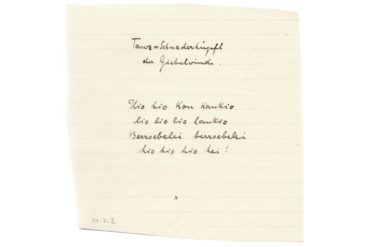 Tanz-Schnaderhüpfl
der Giebelwinde.
Hio hio Kon kankio
lio lio lio lankio
Bersebelei bersebelei
hio hio hio hei!
x